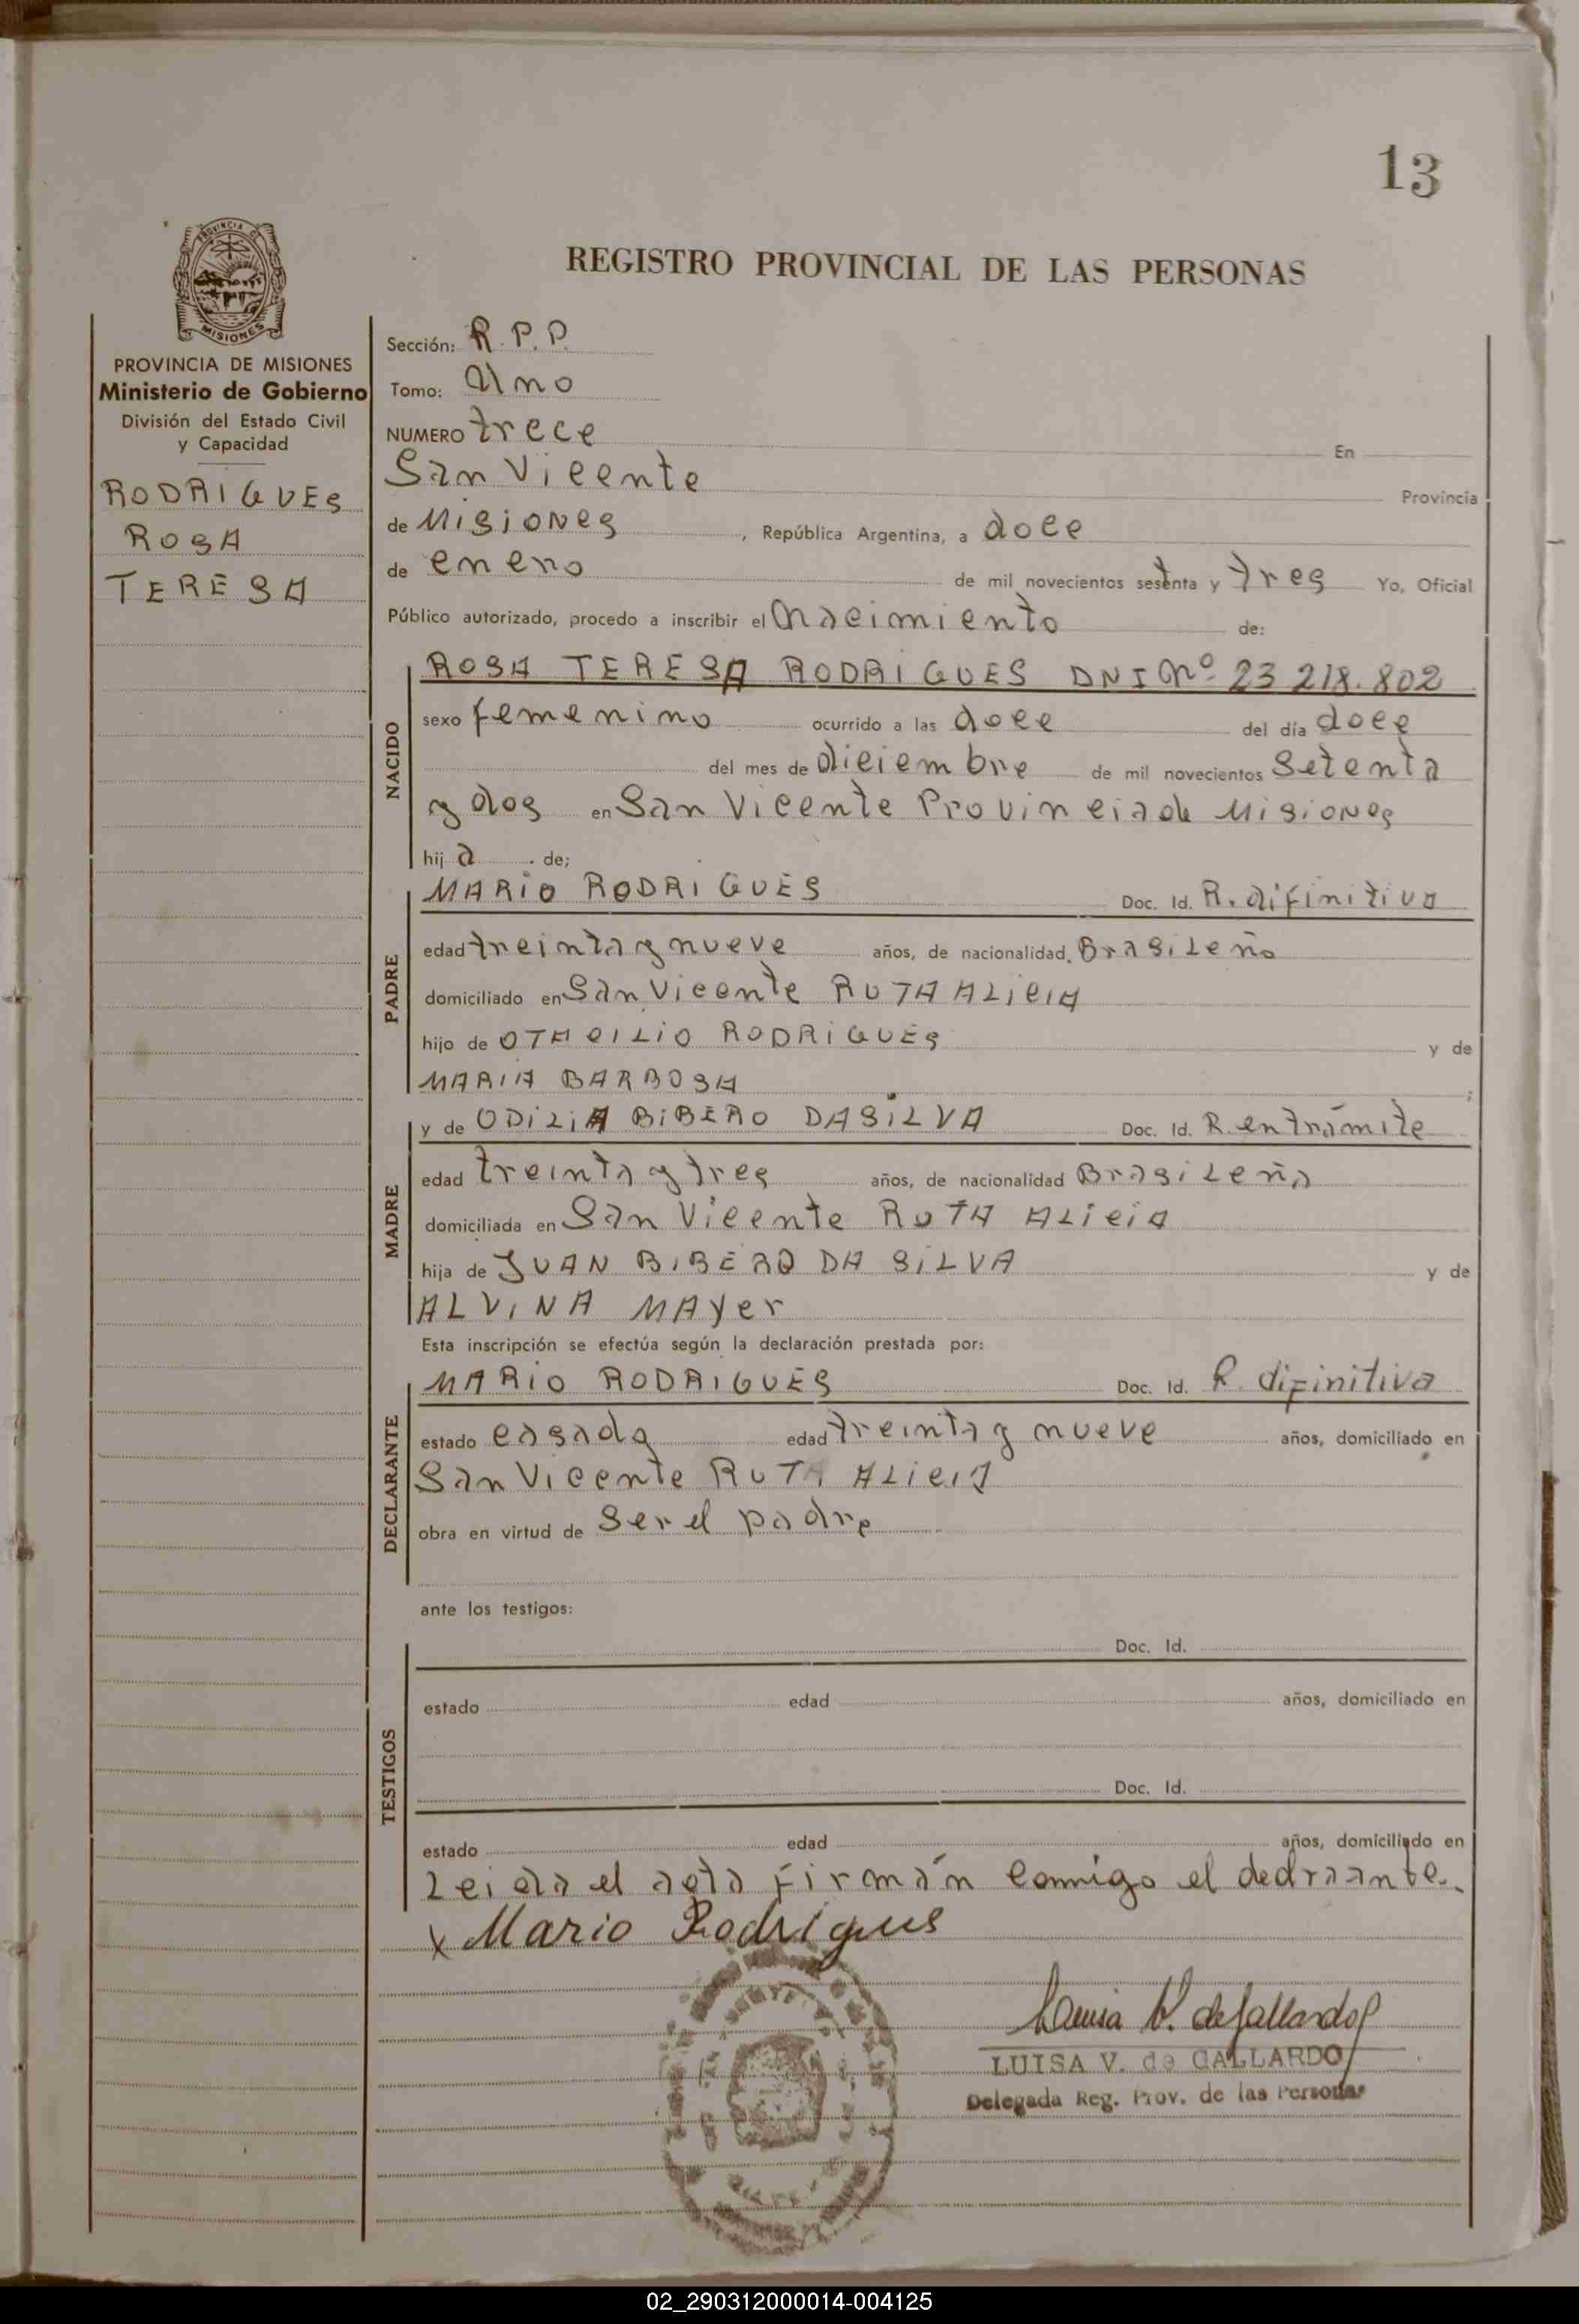 13
REGISTRO PROVINCIAL DE LAS PERSONAS
PROVINCIA DE MISIONES
Ministerio de Gobierno
División del Estado Civil
y Capacidad
RODRIGUES
ROSA
TERESA
Sección: R.P.P.
Tomo: Uno
NUMERO trece En
San Vicente Provincia
de Misiones, República Argentina, a doce
de enero de mil novecientos setenta y tres Yo, Oficial
Público autorizado, procedo a inscribir el nacimiento de:
NACIDO
ROSA TERESA RODRIGUES DNI Nº 23 218.802
sexo femenino ocurrido a las doce del día doce
del mes de diciembre de mil novecientos setenta
y dos en San Vicente Provincia de Misiones
hija de;
PADRE
MARIO RODRIGUES Doc. Id. R. difinitiva
edad treinta y nueve años, de nacionalidad Brasileño
domiciliado en San Vicente RUTA ALICIA
hijo de OTACILIO RODRIGUES y de
MARIA BARBOSA;
MADRE
y de ODILIA BIBERO DASILVA Doc. Id. R. en trámite
edad treinta y tres años, de nacionalidad Brasileña
domiciliada en San Vicente RUTA ALICIA
hija de JUAN BIBERO DA SILVA y de
ALVINA MAYer
Esta inscripción se efectúa según la declaración prestada por:
DECLARANTE
MARIO RODRIGUES Doc. Id. R. difinitiva
estado casado edad treinta y nueve años, domiciliado en
San Vicente RUTA ALICIA
obra en virtud de ser el padre
ante los testigos:
TESTIGOS
Doc. Id.
estado edad años, domiciliado en
Doc. Id.
estado edad años, domiciliado en
Leida el acta firmán conmigo el declraante.
x Mario Rodrigues
Luisa V. de Gallardo
LUISA V. de GALLARDO
Delegada Reg. Prov. de las Personas
02_290312000014-004125